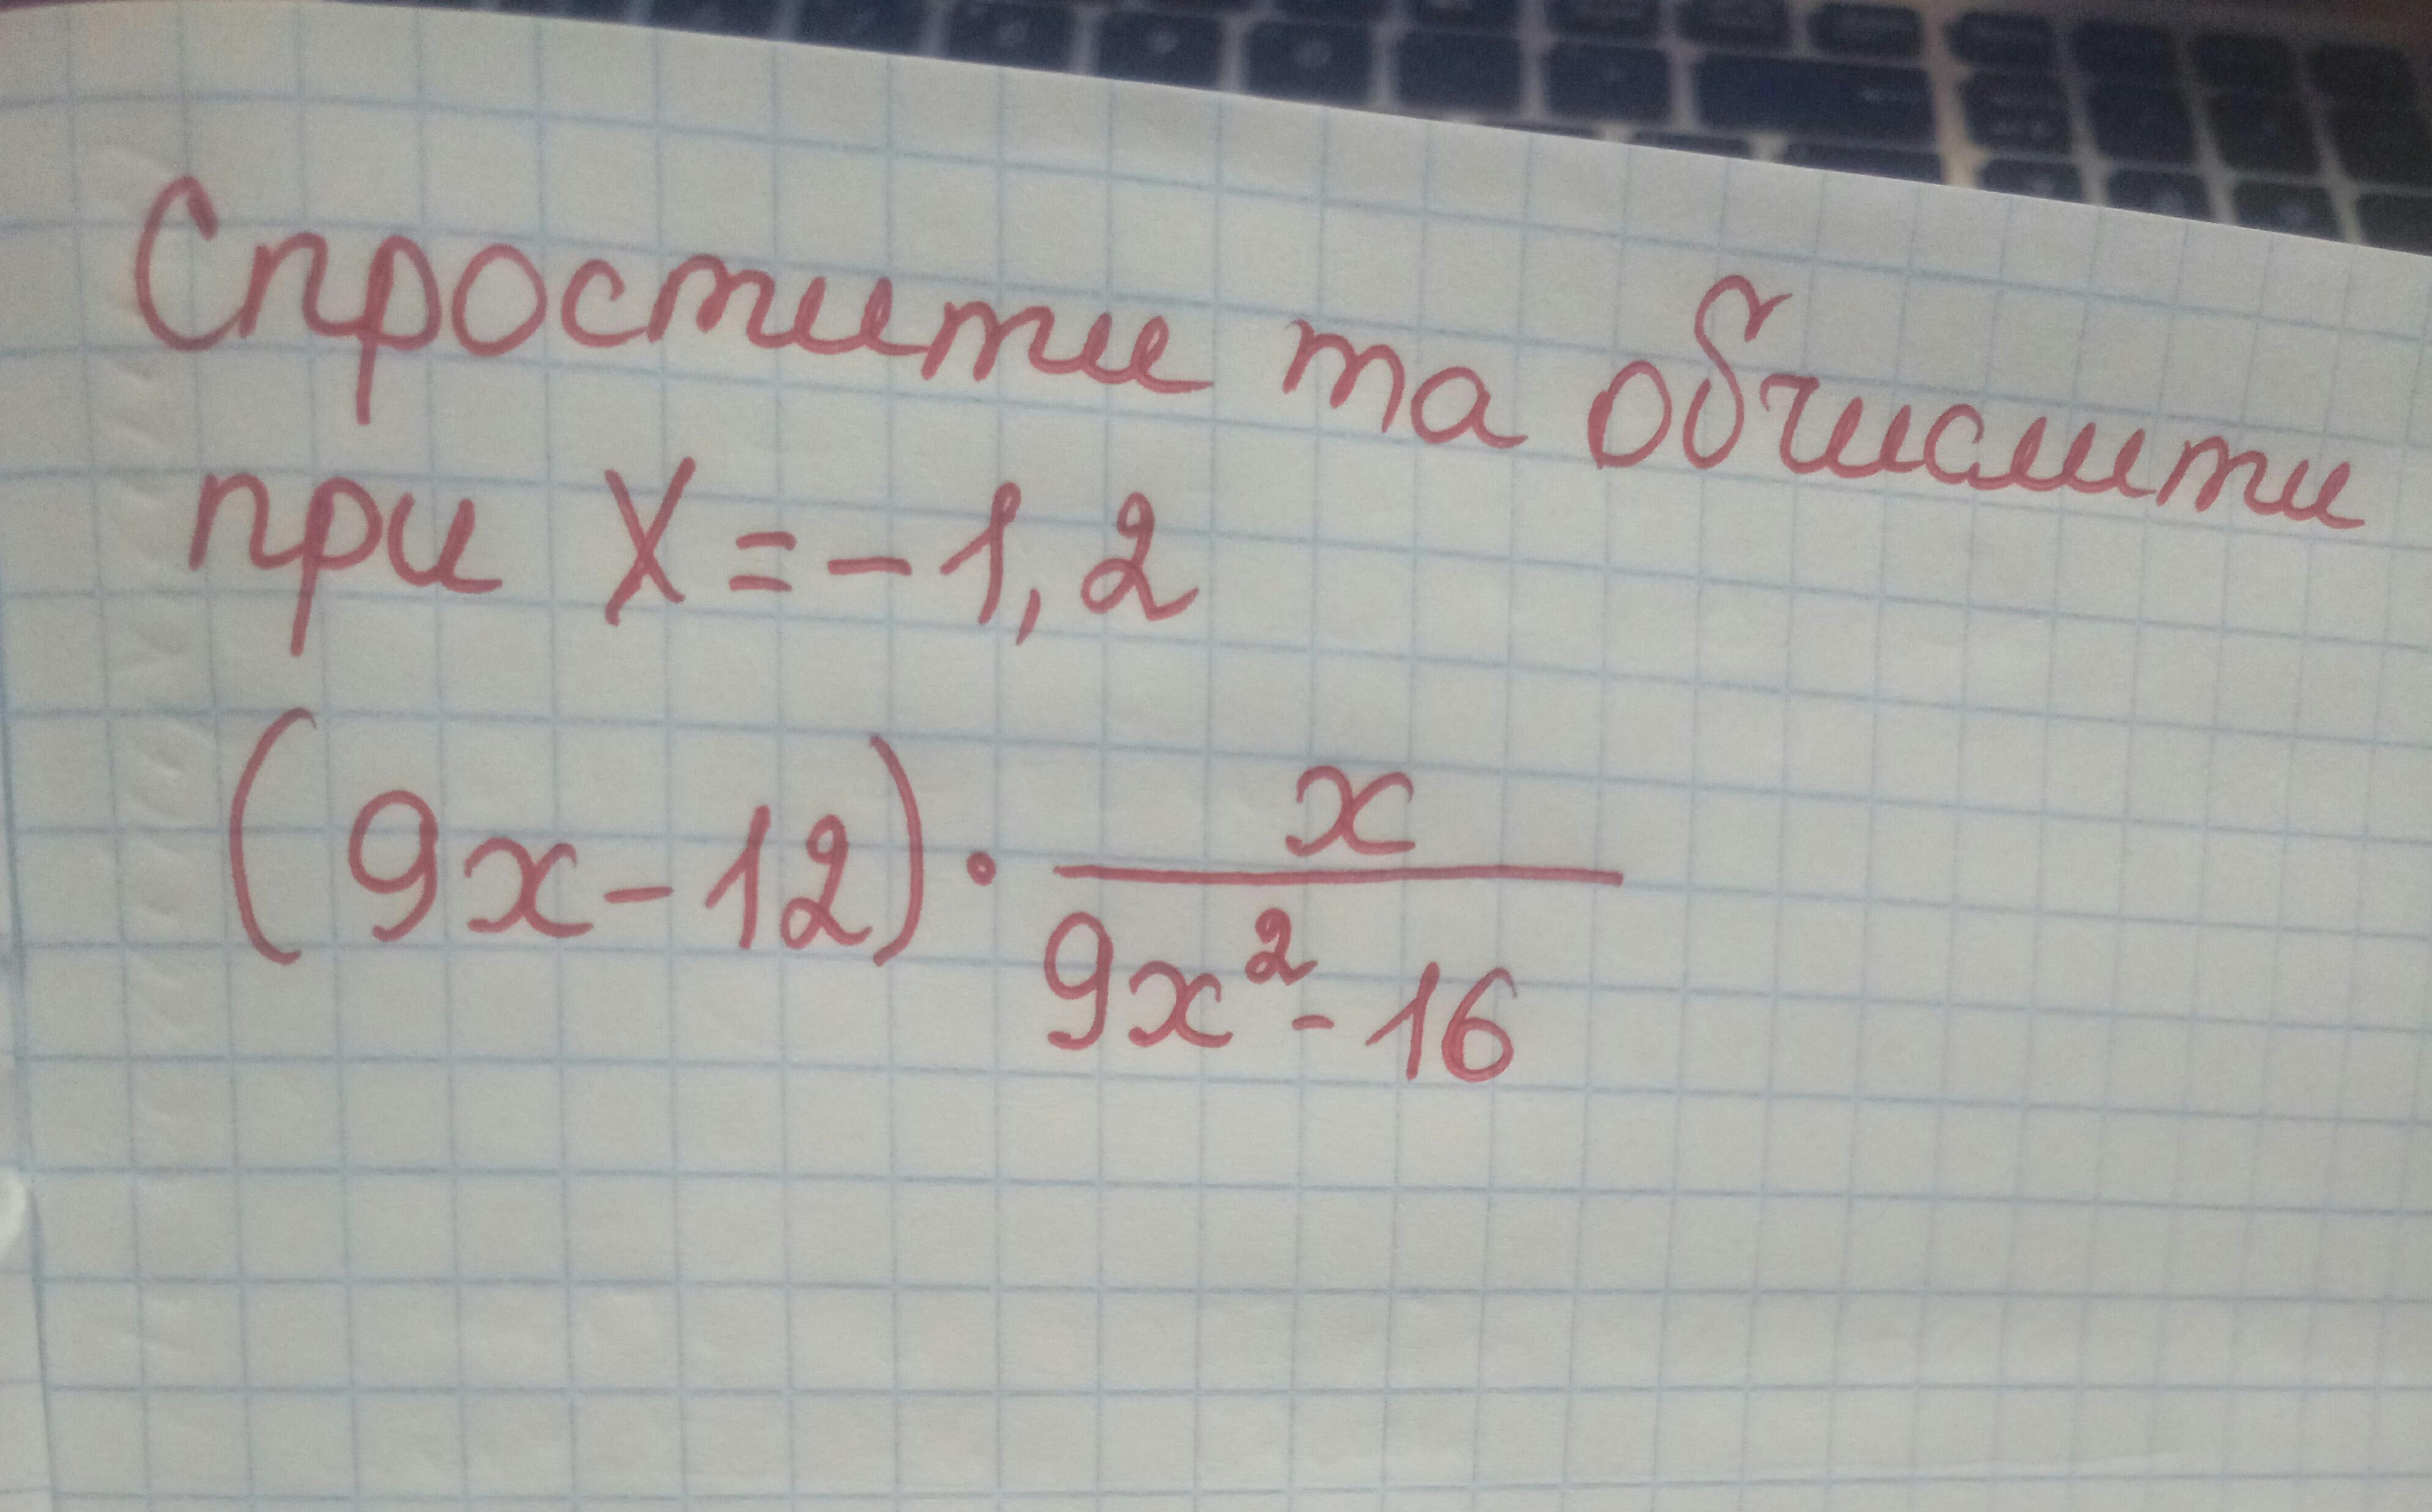 Спростити та обчислити
при X = -1,2
(9x-12) · x/(9x²-16)